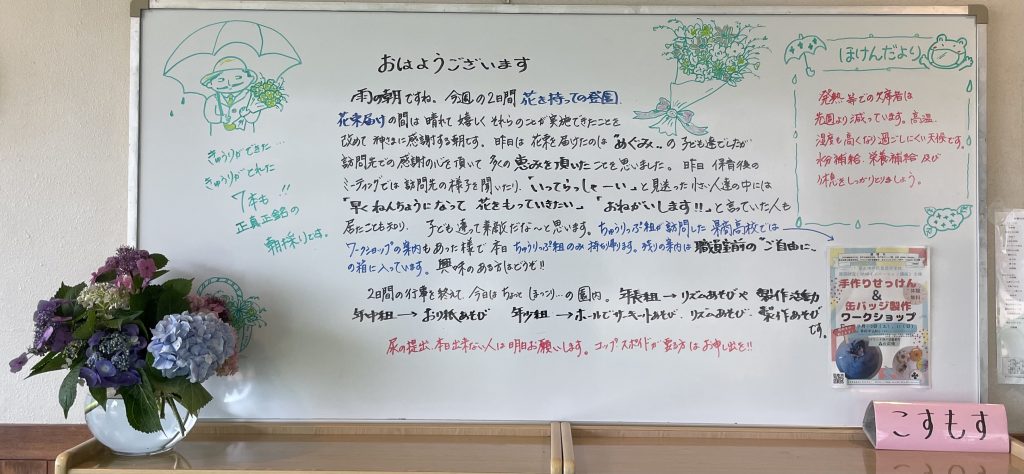 おはようございます
雨の朝ですね。今週の2日間 花を持っての登園
花束届けの間は晴れて嬉しくそれらのことが実施できたことを
改めて神さまに感謝する朝です。昨日は花束を届けたのは〝めぐみ〟の子ども達でしたが
訪問先での感謝の心を頂いて多くの恵みを頂いたことを思いました。昨日 保育後の
ミーティングでは訪問先の様子を聞いたり、「いってらっしゃーい」と見送った小さい人達の中には
「早くねんちょうになって 花をもっていきたい」「おねがいします!!」と言っていた人も
居たことも知り、子ども達って素敵だな〜と思います。ちゅうりっぷ組が訪問した 商高校では
ワークショップの案内もあった様で 本日 ちゅうりっぷ組のみ持ち帰ります。残りの案内は 職員室前の〝ご自由に〟
の箱に入っています。興味のある方はどうぞ!!
2日間の行事を終えて、今日はちょっとほっこり…の園内。年長組→リズムあそびや 製作活動
年中組→おり紙あそび 年少組→ホールでサーキットあそび、リズムあそび、製作あそび
です。
尿の提出、本日出来ない人は明日お願いします。コップ スポイトが要る方はお申し出を!!
きゅうりができた…
きゅうりがとれた
7本も!!
正真正銘の
朝採りです。
ほけんだより
発熱等での欠席者は
先週より減っています。高温、
湿度も高くなり過ごしにくい天候です。
水分補給、栄養補給及び
休息をしっかりとりましょう。
手作りせっけん
&
缶バッジ製作
ワークショップ
こすもす